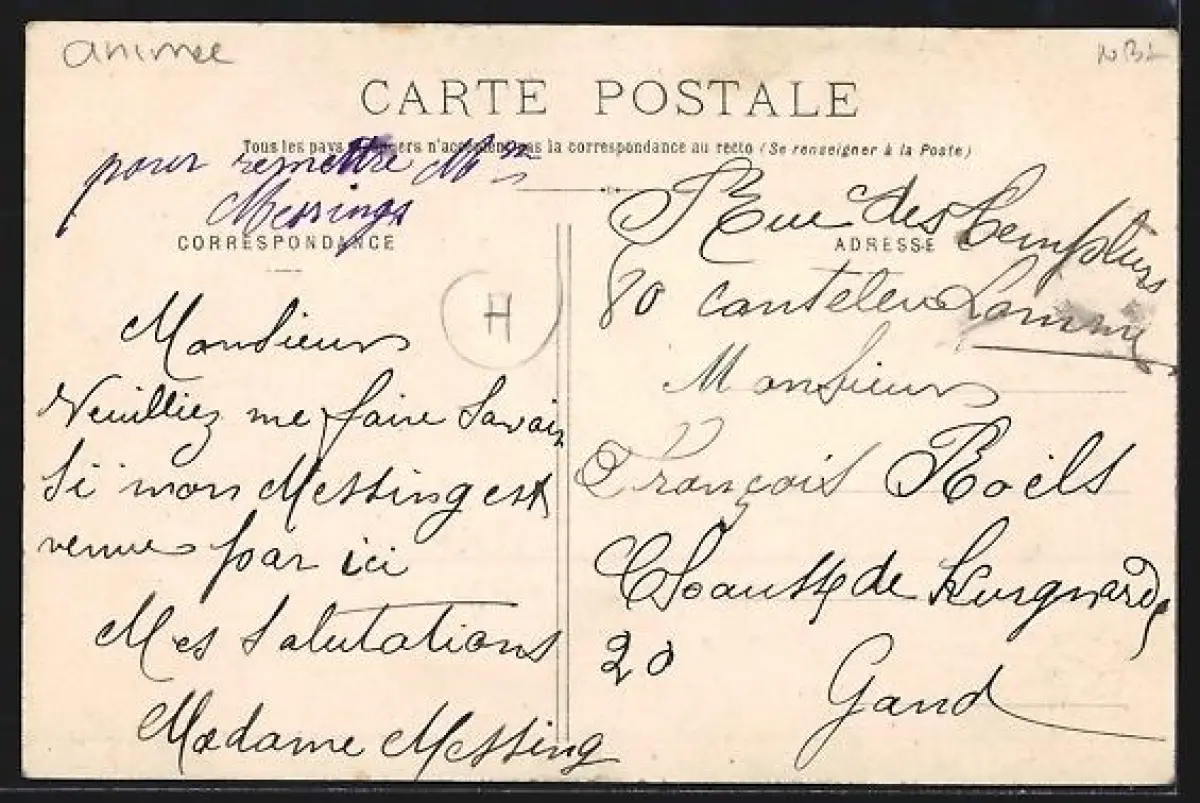 animee
CARTE POSTALE
Tous les pays étrangers n'acceptent pas la correspondance au recto (Se renseigner à la Poste)
pour remettre Mm
Messings
CORRESPONDANCE
H
Monsieur
Veuilliez me faire Savoir
Si mon Messing est
venue par ici
Mes Salutations
Madame Messing
Rue des Templiers
ADRESSE
80 Canteleu Lomme
Monsieur
François Roëls
de
20
Gand